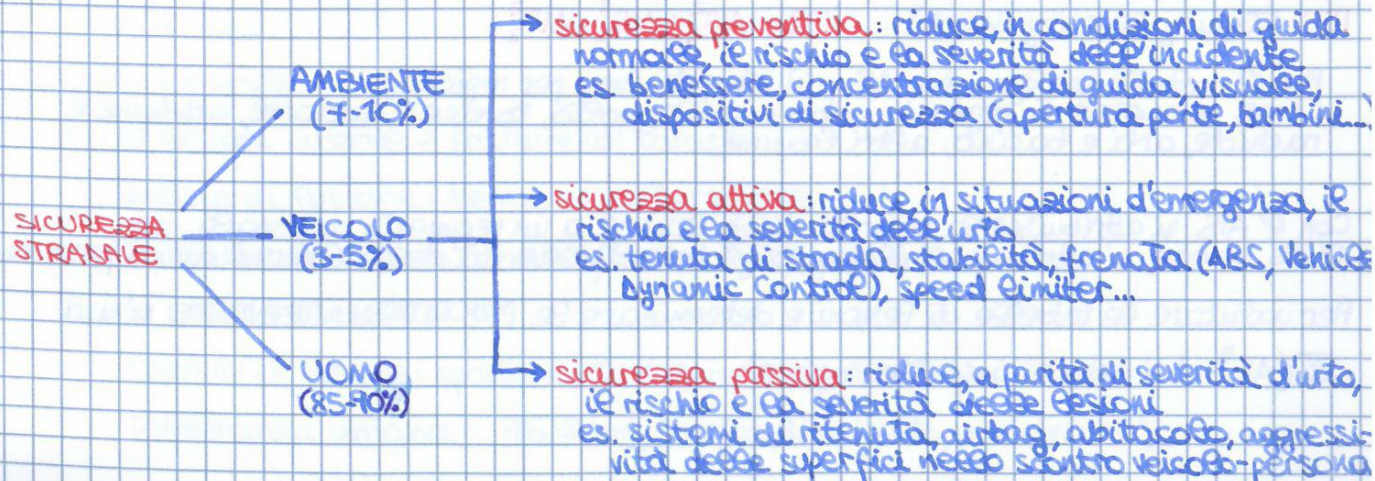 SICUREZZA
STRADALE
AMBIENTE
(7-10%)
VEICOLO
(3-5%)
UOMO
(85-90%)
sicurezza preventiva: riduce, in condizioni di guida
normale, il rischio e la severità dell'incidente
es. benessere, concentrazione di guida, visuale,
dispositivi di sicurezza (apertura porte, bambini...)
sicurezza attiva: riduce, in situazioni d'emergenza, il
rischio e la severità dell'urto
es. tenuta di strada, stabilità, frenata (ABS, Vehicle
Dynamic Control), speed limiter...
sicurezza passiva: riduce, a parità di severità d'urto,
il rischio e la severità delle lesioni
es. sistemi di ritenuta, airbag, abitacolo, aggressi-
vità delle superfici nello scontro veicolo-persona